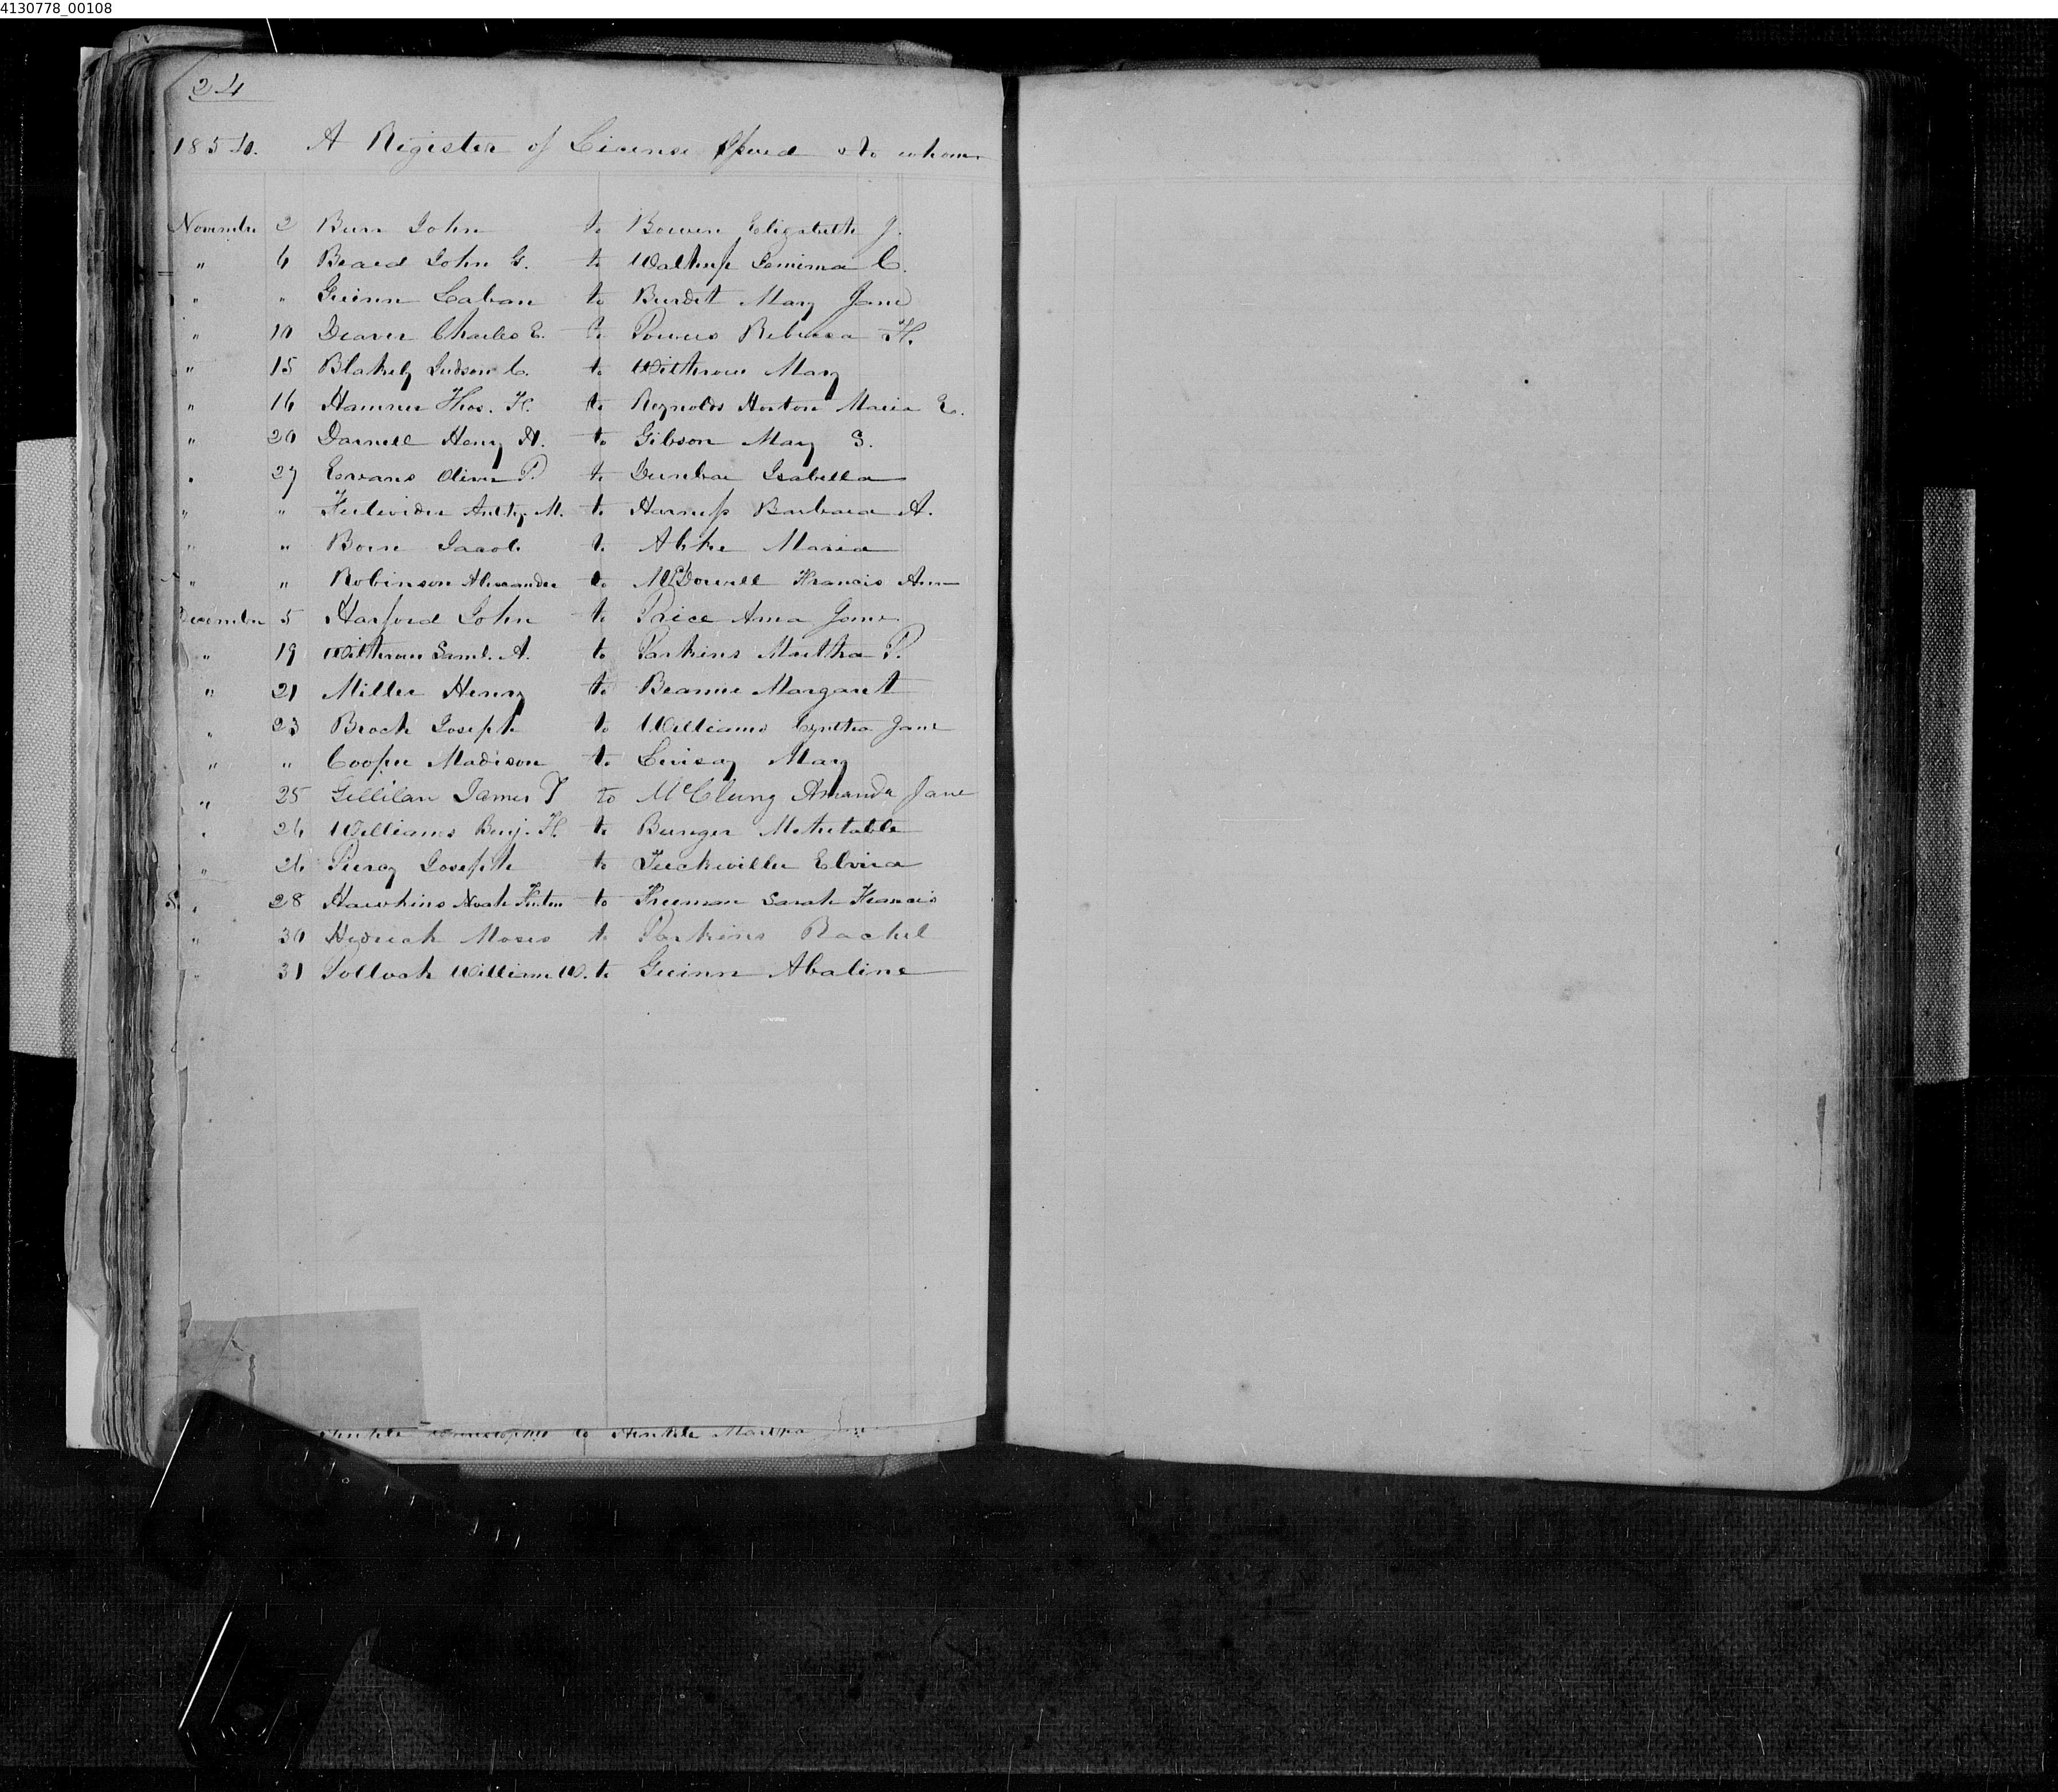 4130778_00108
24
1854. A Register of License Issued & to whom
November 2 Burr John to Bowen Elizabeth J.
" 6 Beard John G. to Walthup Jemima C.
" " Guinn Laban to Burdet Mary Jane
" 10 Deaver Charles E. to Powers Rebecca H.
" 15 Blakely Judson C. to Withrow Mary
" 16 Hamner Thos. H. to Reynolds Horton Maria E.
" 20 Darnell Henry A. to Gibson Mary S.
" 27 Ervans Oliver P. to Dunbar Isabella
" " M. to Harness Barbara A.
" " Born Jacob to Maria
" " Robinson Alexander to McDowell Francis Ann
December 5 Harford John to Price Anna Jane
" 19 Withrow Saml. A. to Parkins Martha P.
" 21 Miller Henry to Margaret
" 23 Brock Joseph to Williams Cyntha Jane
" " Cooper Madison to Livisay Mary
" 25 Gillilan James T to McClung Amanda Jane
" 26 Williams Benj. H. to Bunger Mehetable
" 26 Piercy Joseph to Tuckwiller Elvira
" 28 Hawkins Noah to Freeman Sarah Francis
" 30 Hedrick Moses to Parkins Rachel
" 31 Pollock William W. to Guinn Abaline
to Martha